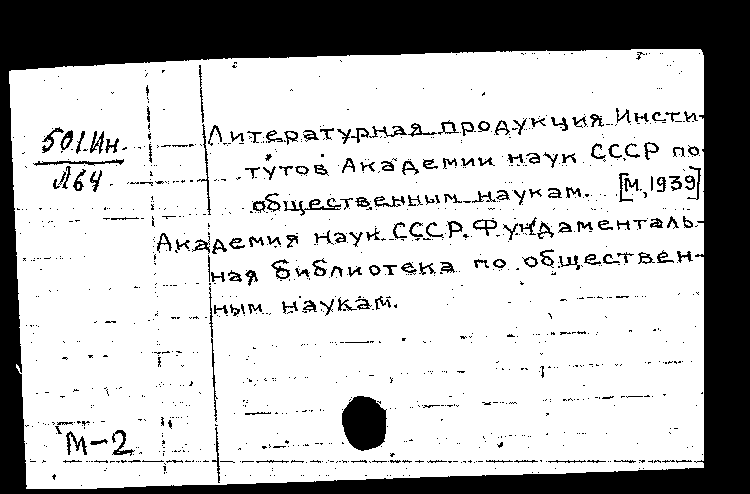 501.Ин.
Л64
Литературная продукция Инсти-
тутов Академии наук СССР по
общественным наукам. [М, 1939]
Академия наук СССР. Фундаменталь-
ная библиотека по обществен-
ным наукам.
М-2